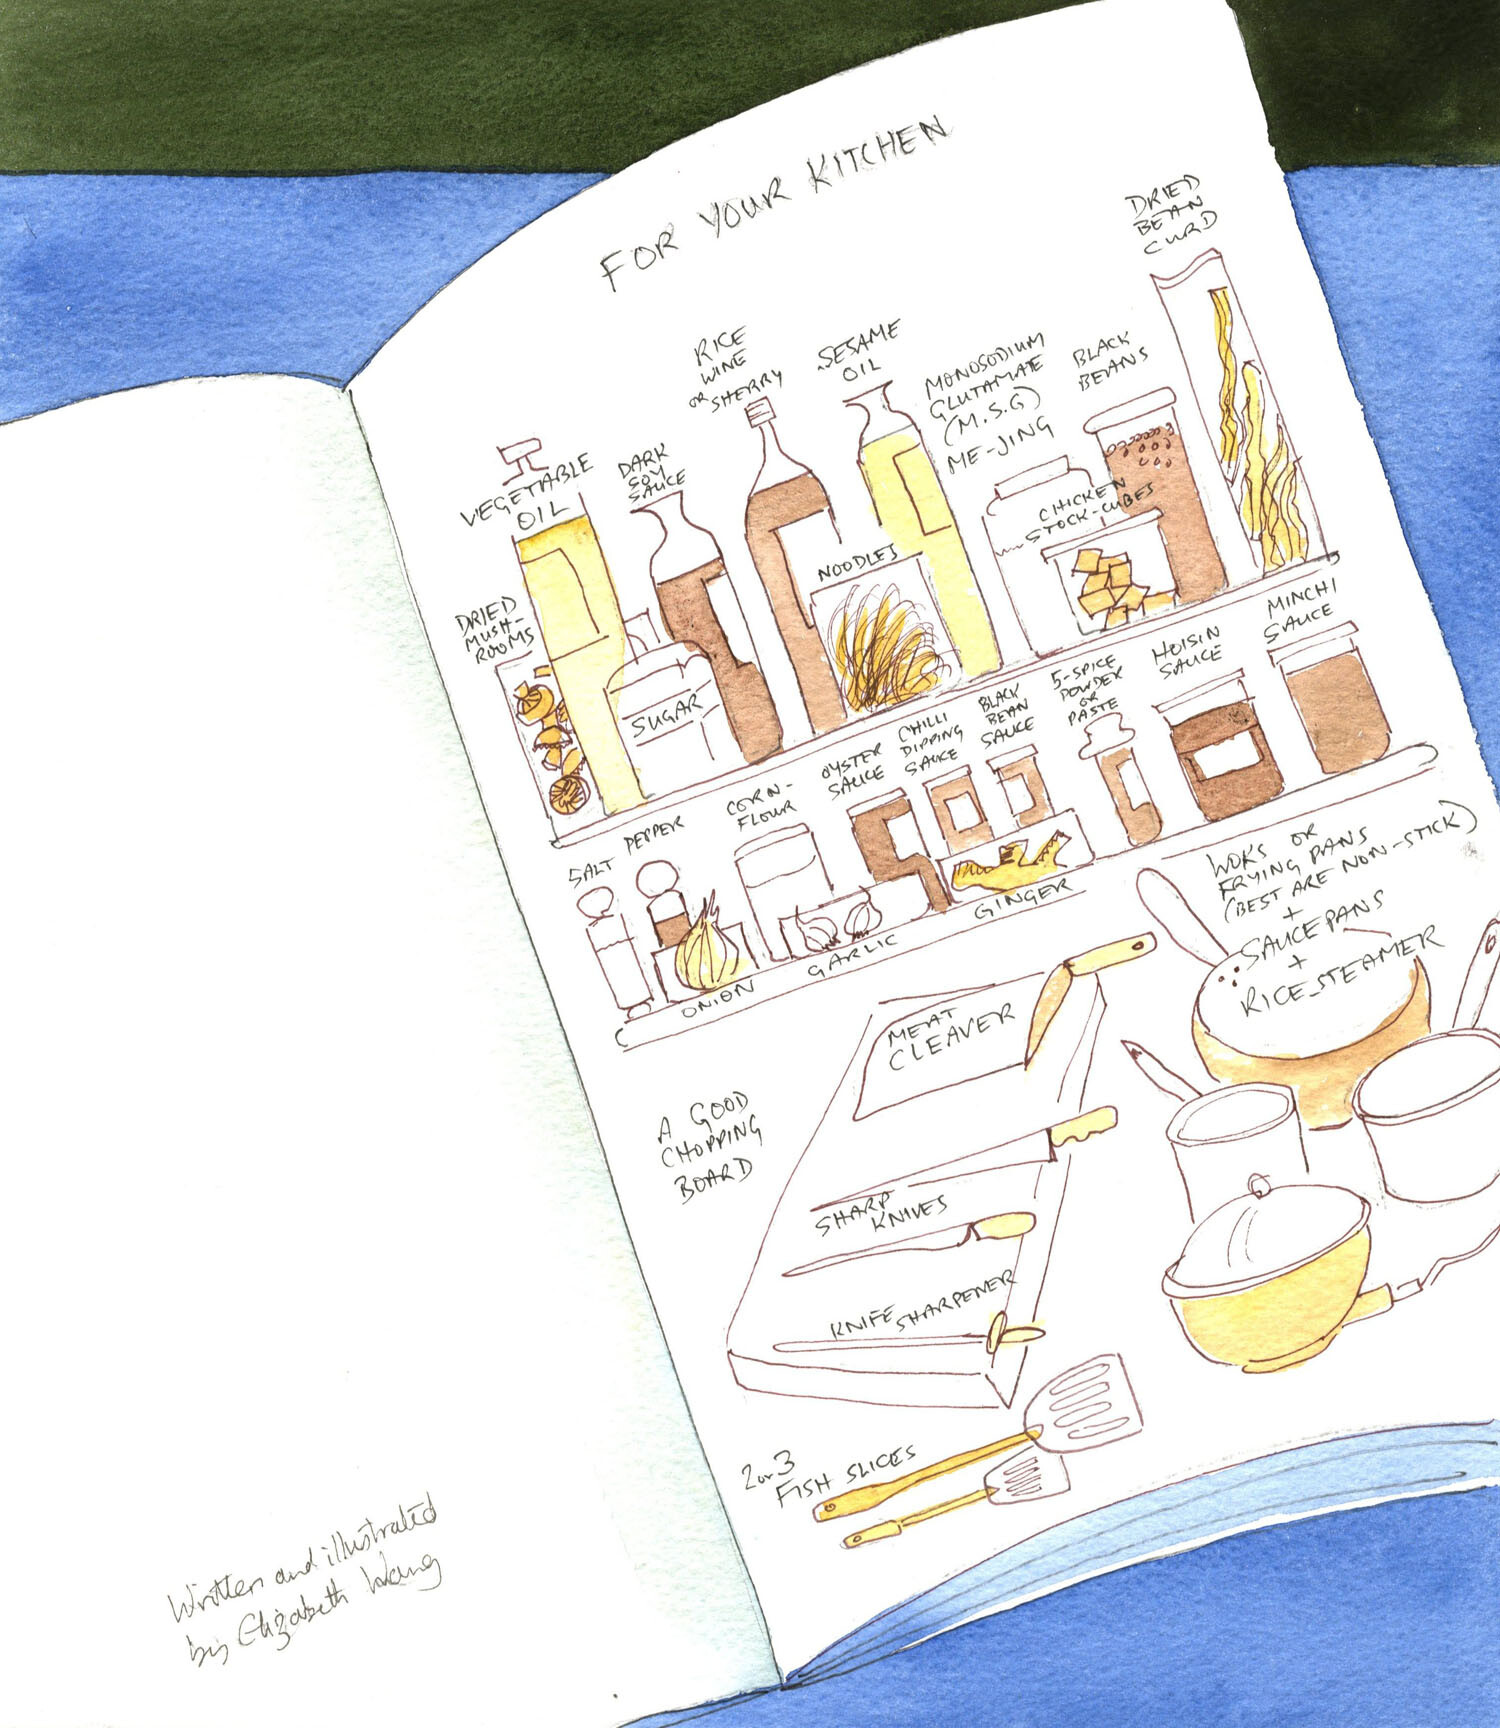 FOR YOUR KITCHEN
DRIED
BEAN
CURD
RICE
WINE
OR SHERRY
SESAME
OIL
MONOSODIUM
GLUTAMATE
(M.S.G)
ME-JING
BLACK
BEANS
VEGETABLE
OIL
DARK
SOY
SAUCE
CHICKEN
STOCK-CUBES
NOODLES
DRIED
MUSH-
ROOMS
SUGAR
MINCHI
SAUCE
HOISIN
SAUCE
5-SPICE
POWDER
OR
PASTE
BLACK
BEAN
SAUCE
CHILLI
DIPPING
SAUCE
OYSTER
SAUCE
CORN-
FLOUR
PEPPER
SALT
ONION
GARLIC
GINGER
WOKS OR
FRYING PANS
(BEST ARE NON-STICK)
+
SAUCEPANS
+
RICE-STEAMER
MEAT
CLEAVER
A GOOD
CHOPPING
BOARD
SHARP
KNIVES
KNIFE SHARPENER
2 or 3
FISH SLICES
Written and illustrated
by Elizabeth Wang